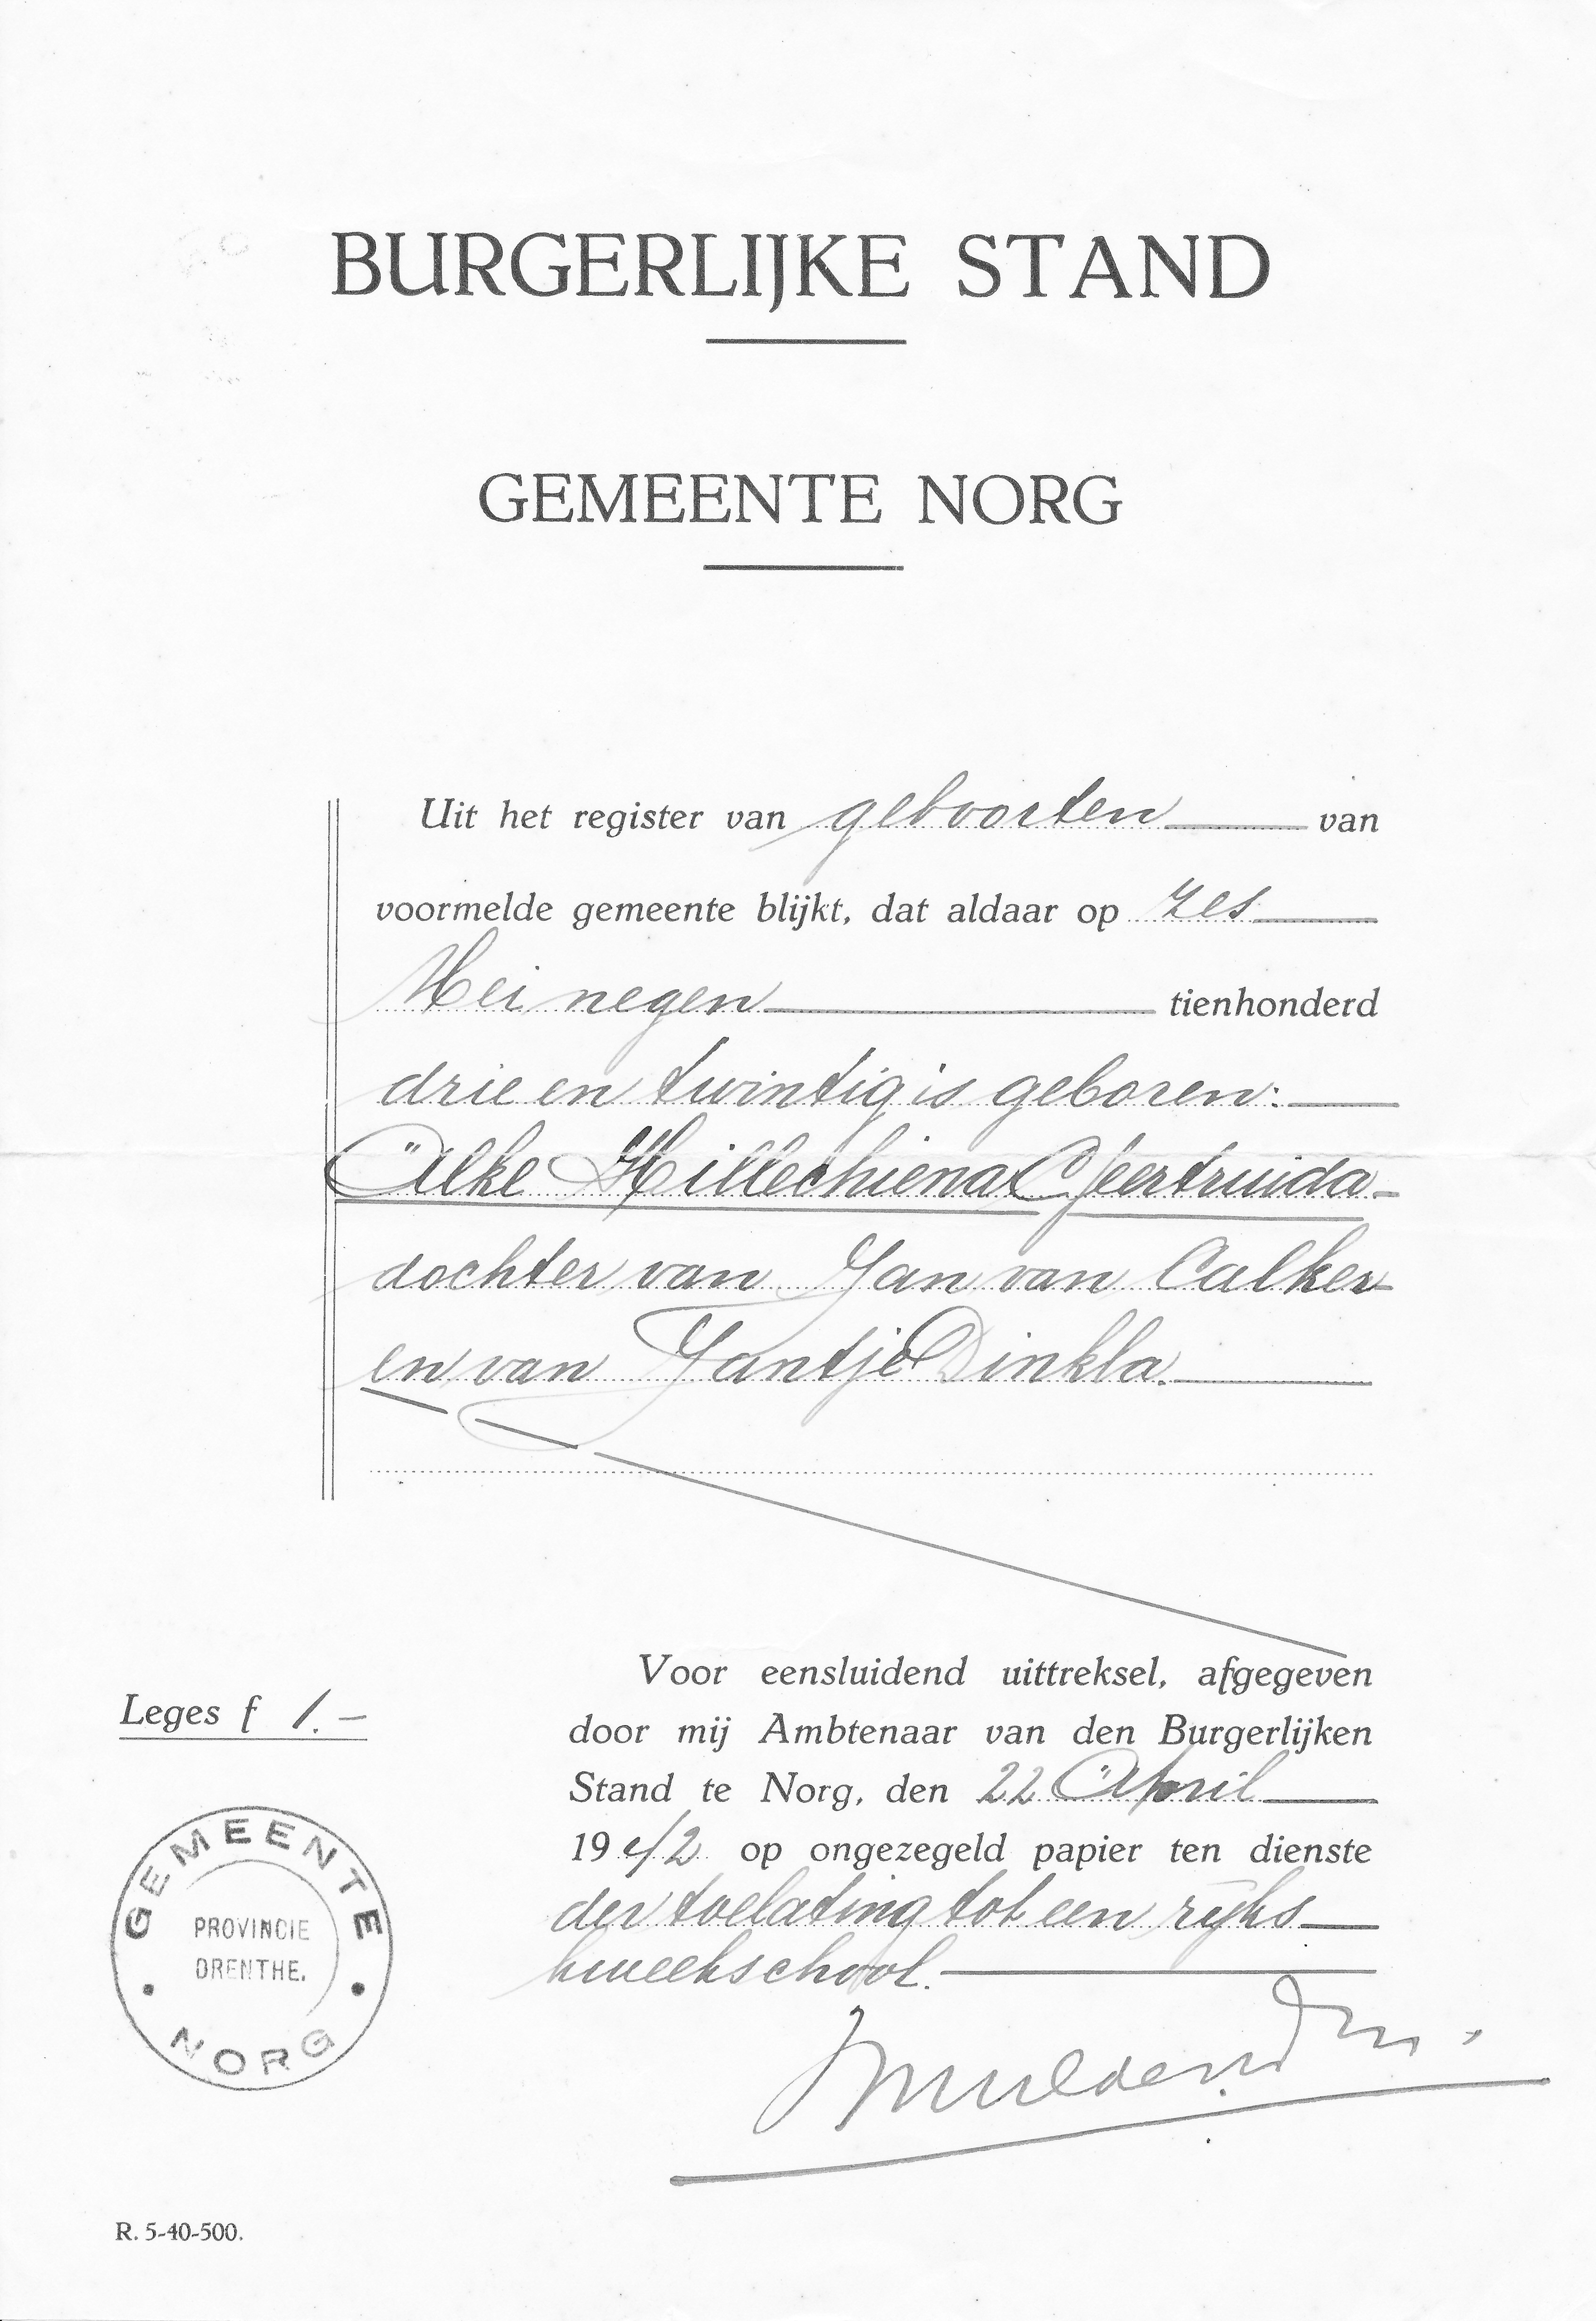 BURGERLIJKE STAND
GEMEENTE NORG
Uit het register van geboorten van
voormelde gemeente blijkt, dat aldaar op zes
Mei negen tienhonderd
drie en twintig is geboren:
Alke Hillechiena Geertruida
dochter van Jan van Calker
en van Jantje Dinkla.
Voor eensluidend uittreksel, afgegeven
door mij Ambtenaar van den Burgerlijken
Stand te Norg, den 22 April
1942 op ongezegeld papier ten dienste
der toelating tot een rijks
kweekschool.
Leges f 1.-
GEMEENTE NORG
PROVINCIE
DRENTHE.
R. 5-40-500.